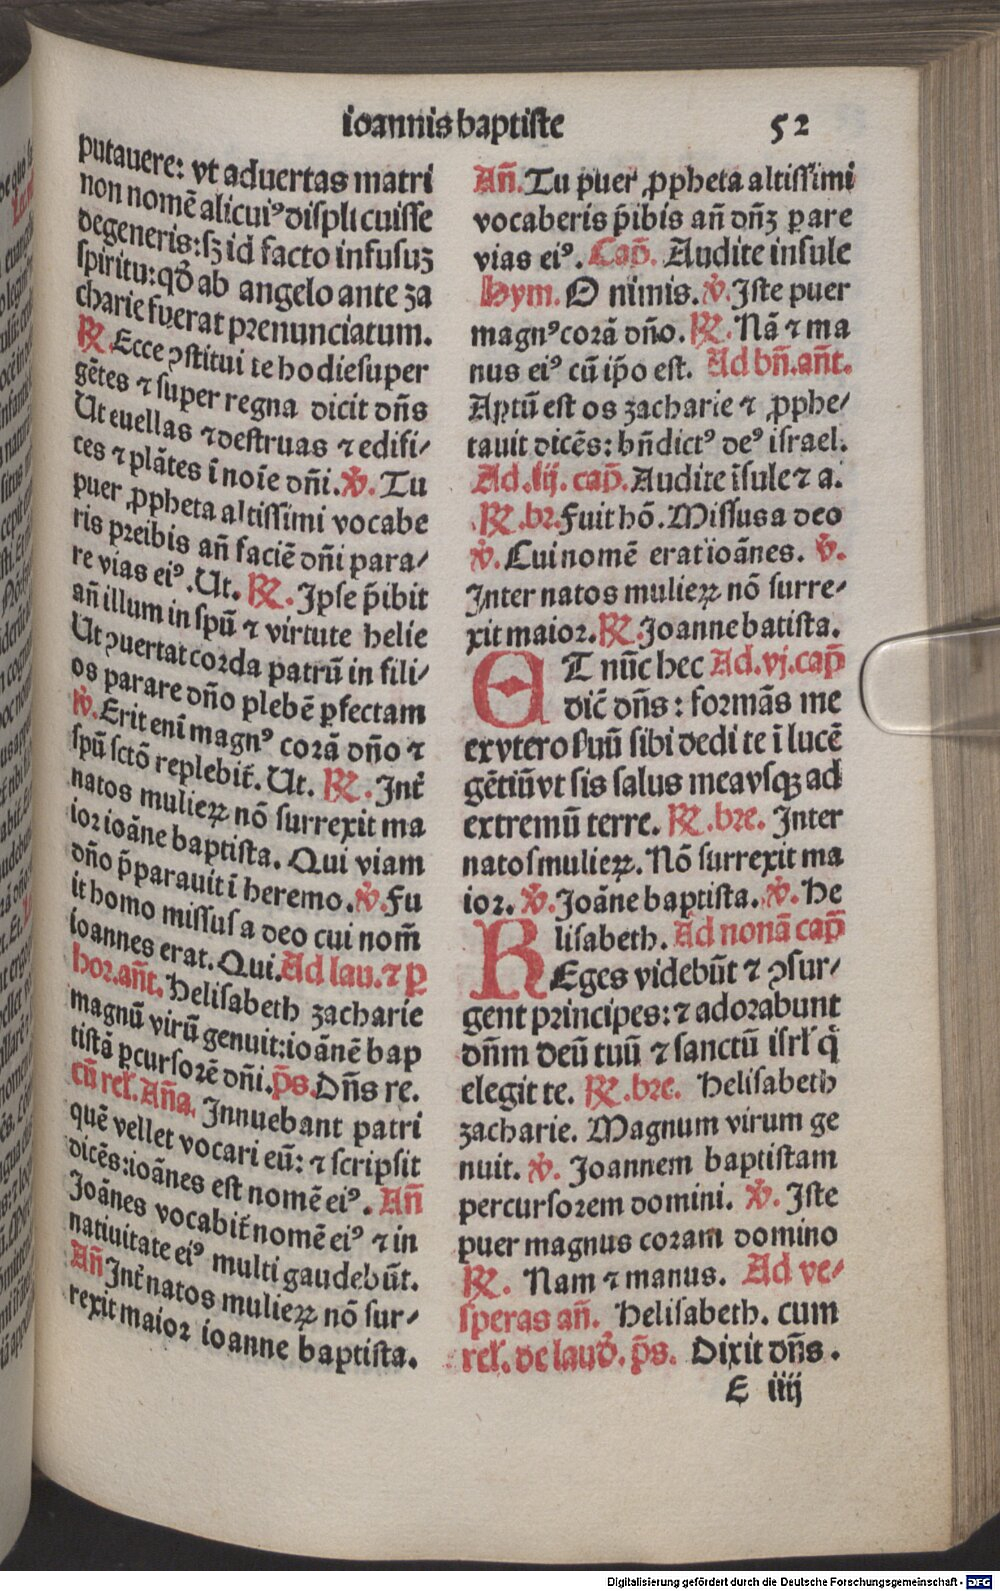 ioannis baptiste 52
putauere: vt aduertas matri
non nomē alicuiꝰ displicuisse
degeneris: sꝫ id facto infusuꝫ
spiritu: qđ ab angelo ante za
charie fuerat prenunciatum.
℞. Ecce ꝯstitui te hodie super
gētes ⁊ super regna dicit dn̄s
Ut euellas ⁊ destruas ⁊ edifi⸗
ces ⁊ plātes ī noīe dn̄i. ℣. Tu
puer ꝓpheta altissimi vocabe
ris preibis an̄ faciē dn̄i para⸗
re vias eiꝰ. Ut. ℞. Ipse p̄ibit
an̄ illum in spū ⁊ virtute helie
Ut ꝯuertat corda patrū in fili⸗
os parare dn̄o plebē ꝑfectam
℣. Erit enī magnꝰ corā dn̄o ⁊
spū sctō replebit̄. Ut. ℞. Int̄
natos mulieꝝ nō surrexit ma
ior ioāne baptista. Qui viam
dn̄o p̄parauit ī heremo. ℣. Fu
it homo missus a deo cui nom̄
ioannes erat. Qui. Ad lau. ⁊ ꝑ
hor. an̄t. Helisabeth zacharie
magnū virū genuit: ioānē bap
tistā ꝑcursorē dn̄i. p̄s. Dn̄s re.
cū reł. An̄a. Innuebant patri
quē vellet vocari eū: ⁊ scripsit
dicēs: ioānes est nomē eiꝰ. An̄
Joānes vocabit̄ nomē eiꝰ ⁊ in
natiuitate eiꝰ multi gaudebūt.
An̄ Int̄ natos mulieꝝ nō sur⸗
rexit maior ioanne baptista.
An̄. Tu puer ꝓpheta altissimi
vocaberis p̄ibis an̄ dn̄ꝫ pare
vias eiꝰ. Cap̄. Audite insule
Hym. O nimis. ℣. Iste puer
magnꝰ corā dn̄o. ℞. Nā ⁊ ma
nus eiꝰ cū ip̄o est. Ad bn̄. an̄t.
Aꝑtū est os zacharie ⁊ ꝓphe⸗
tauit dicēs: bn̄dictꝰ deꝰ israel.
Ad .iij. cap̄. Audite īsule ⁊ a.
℞. br. Fuit hō. Missus a deo
℣. Cui nomē erat ioānes. ℣.
Inter natos mulieꝝ nō surre⸗
xit maior. ℞. Joanne batista.
ET nūc hec Ad .vj. cap̄
dic̄ dn̄s: formās me
ex vtero suū sibi dedi te ī lucē
gētiū vt sis salus mea vsqꝫ ad
extremū terre. ℞. bre. Inter
natos mulieꝝ. Nō surrexit ma
ior. ℣. Joāne baptista. ℣. He
lisabeth. Ad nonā cap̄
REges videbūt ⁊ ꝯsur⸗
gent principes: ⁊ adorabunt
dn̄m deū tuū ⁊ sanctū isrł q̄
elegit te. ℞. bre. Helisabeth
zacharie. Magnum virum ge
nuit. ℣. Joannem baptistam
percursorem domini. ℣. Iste
puer magnus coram domino
℞. Nam ⁊ manus. Ad ve⸗
speras an̄. Helisabeth. cum
reł. de laud̄. p̄s. Dixit dn̄s.
E iiij
Digitalisierung gefördert durch die Deutsche Forschungsgemeinschaft - DFG